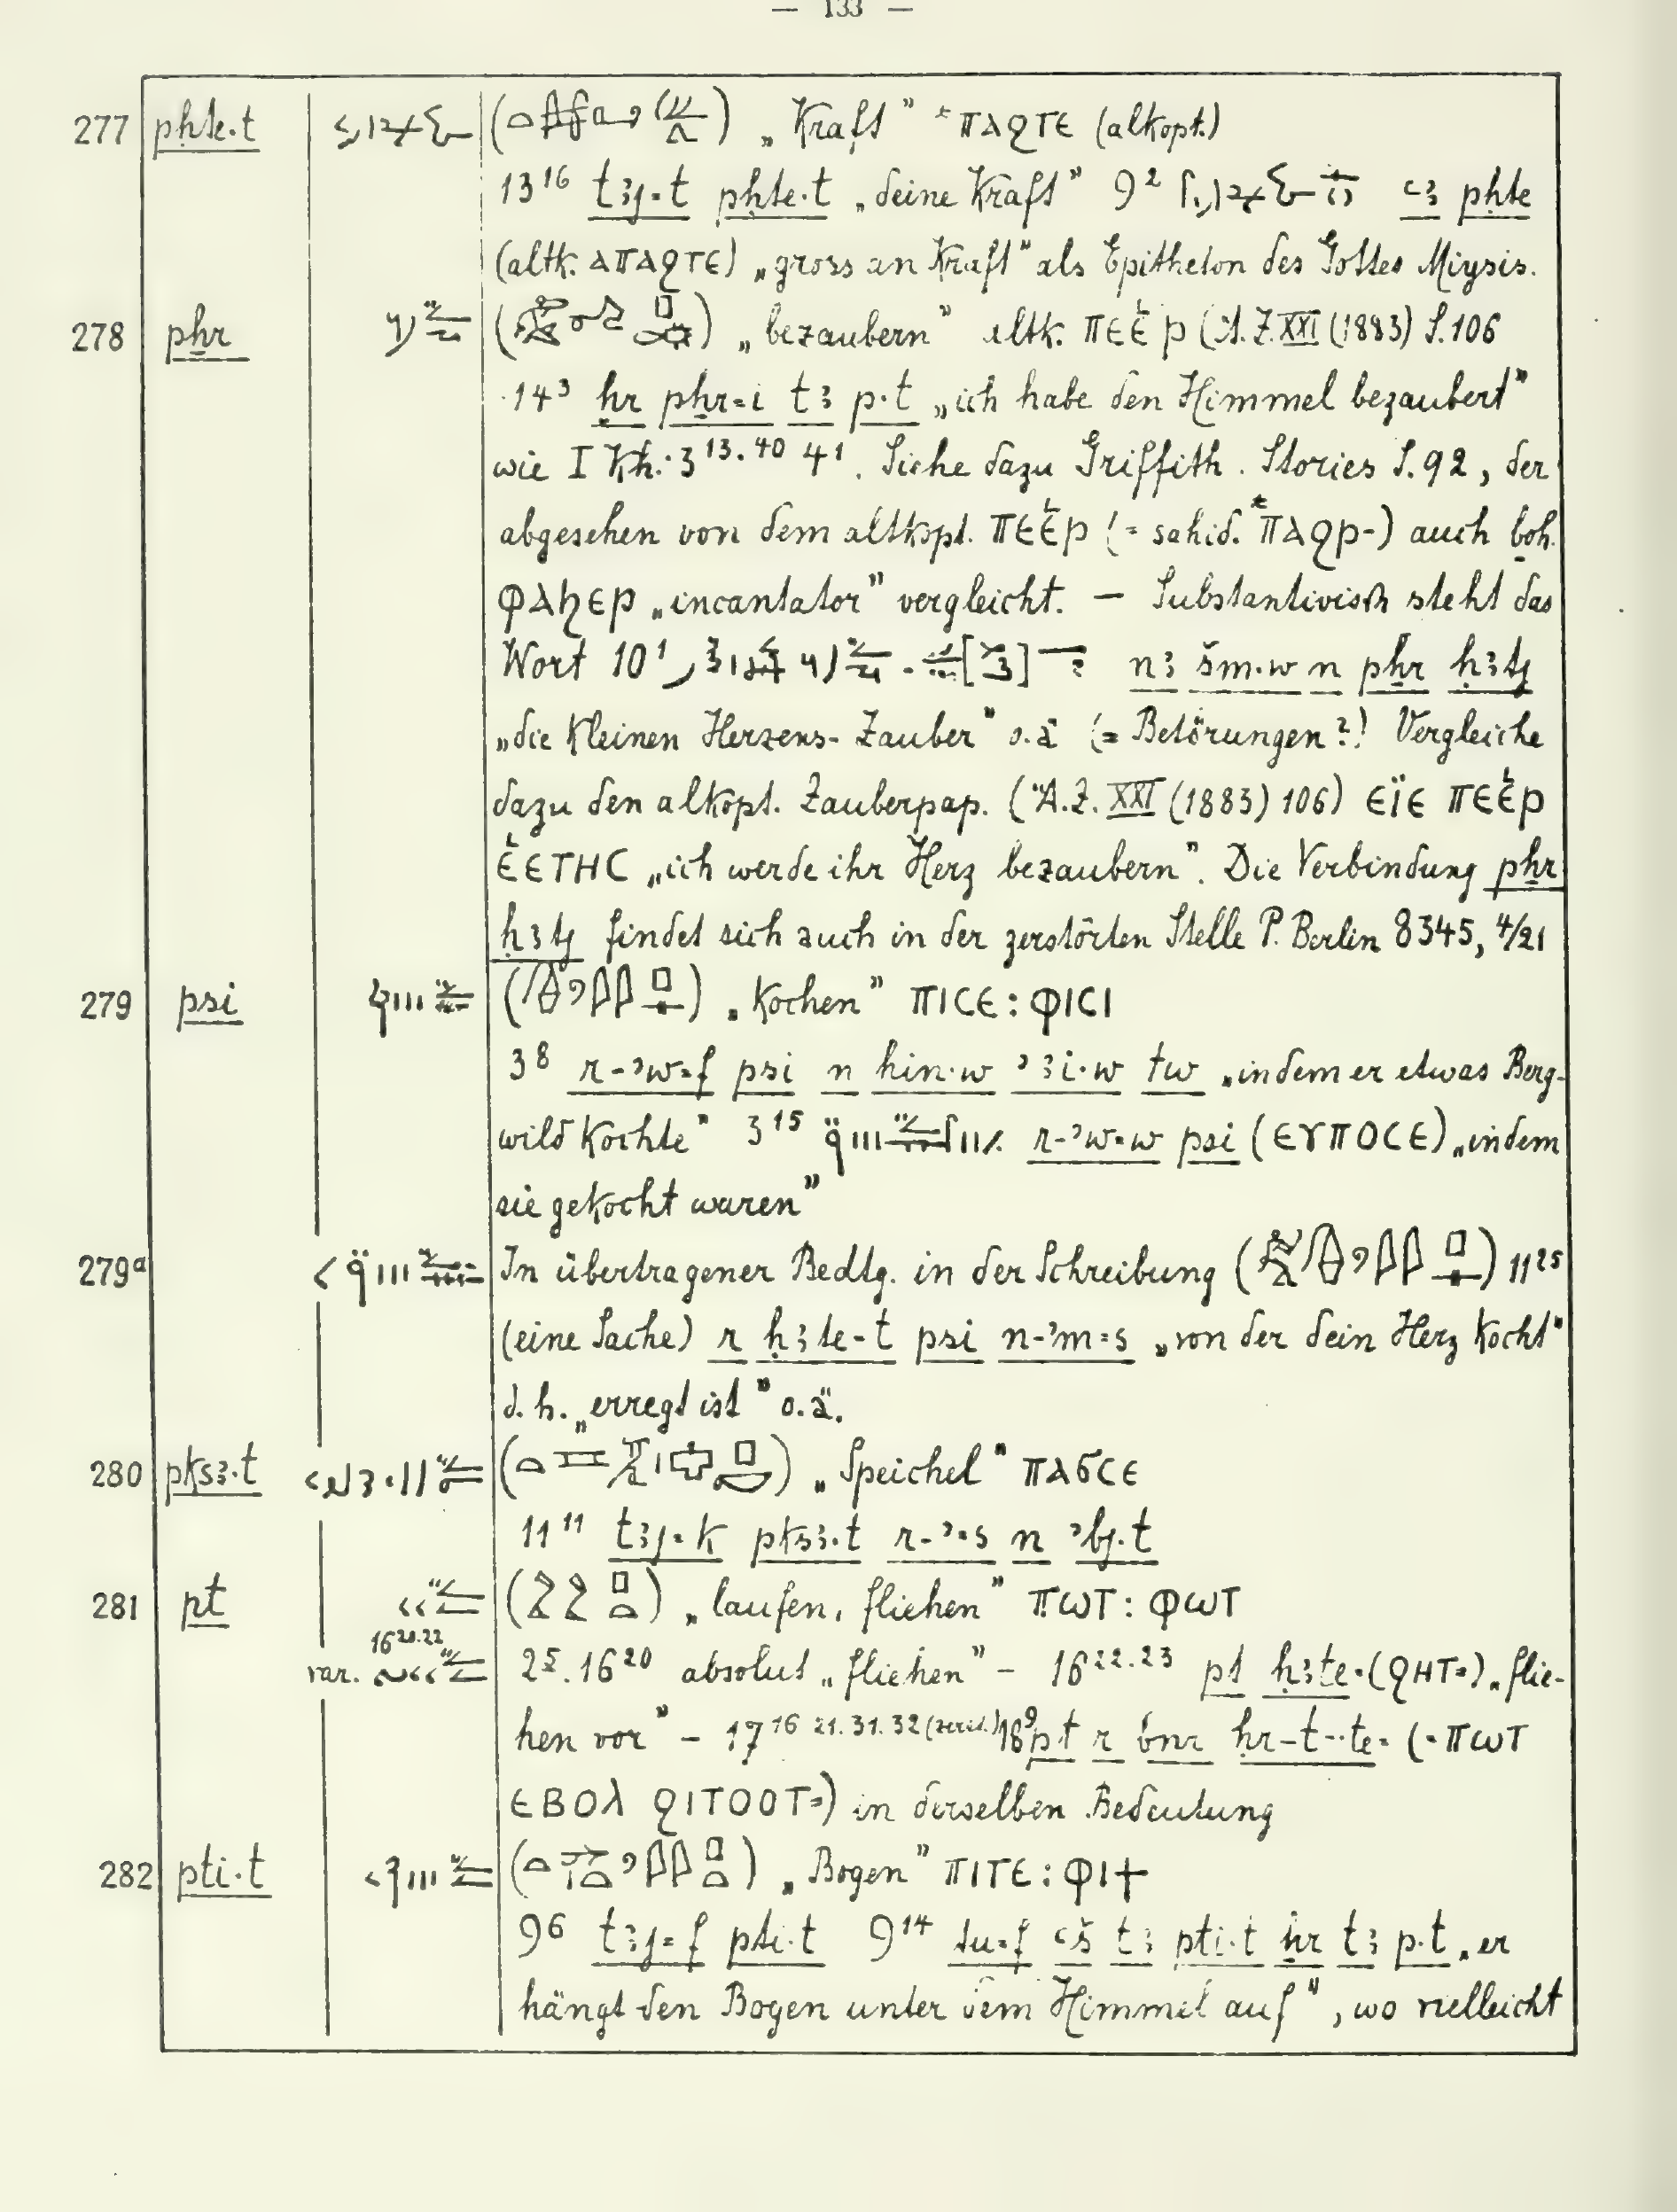 — 133 —
277 pḥte.t „Kraft” *ⲡⲁϩⲧⲉ (altkopt.)
13¹⁶ tꜣj=t pḥte.t „deine Kraft” 9² ꜥꜣ pḥte
(altk. ⲁⲡⲁϩⲧⲉ) „gross an Kraft” als Epitheton des Gottes Miysis.
278 pẖr „bezaubern” altk. ⲡⲉⲉ̔ⲣ (Ä.Z. XXI (1883) S. 106
14³ ḥr pẖr=i tꜣ p.t „ich habe den Himmel bezaubert”
wie I Kh. 3¹³·⁴⁰ 4¹. Siehe dazu Griffith. Stories S. 92, der
abgesehen von dem altkopt. ⲡⲉⲉ̔ⲣ (= sahid. *ⲡⲁϩⲣ-) auch boh.
ⲫⲁϧⲉⲣ „incantator” vergleicht. — Substantivisch steht das
Wort 10¹ nꜣ šm.w n pẖr ḥꜣtj
„die kleinen Herzens-Zauber” o.ä (= Betörungen?! Vergleiche
dazu den altkopt. Zauberpap. (Ä.Z. XXI (1883) 106) ⲉⲓ̈ⲉ ⲡⲉⲉ̔ⲣ
ⲉ̔ⲉⲧⲏⲥ „ich werde ihr Herz bezaubern”. Die Verbindung pẖr
ḥꜣtj findet sich auch in der zerstörten Stelle P. Berlin 8345, 4/21
279 psi „kochen” ⲡⲓⲥⲉ : ⲫⲓⲥⲓ
3⁸ r-ʾw=f psi n hin.w ʾꜣi.w tw „indem er etwas Berg-
wild kochte” 3¹⁵ r-ʾw=w psi (ⲉⲩⲡⲟⲥⲉ) „indem
sie gekocht waren”
279ᵃ In übertragener Bedtg. in der Schreibung 11²⁵
(eine Sache) r ḥꜣte-t psi n-ʾm=s „von der dein Herz kocht”
d. h. „erregt ist” o.ä.
280 pksꜣ.t „Speichel” ⲡⲁϭⲥⲉ
11¹¹ tꜣj=k pksꜣ.t r-ʾ=s n ʾbj.t
281 pt „laufen, fliehen” ⲡⲱⲧ : ⲫⲱⲧ
var. 16²⁰·²² 2⁵. 16²⁰ absolut „fliehen” – 16²²·²³ pt ḥꜣte=(ϩⲏⲧ=) „flie-
hen vor” – 17¹⁶ ²¹·³¹·³² 18⁹ pt r bnr ḥr-t..te= (=ⲡⲱⲧ
ⲉⲃⲟⲗ ϩⲓⲧⲟⲟⲧ=) in derselben Bedeutung
282 pti.t „Bogen” ⲡⲓⲧⲉ : ⲫⲓϯ
9⁶ tꜣj=f pti.t 9¹⁴ ꜥš tꜣ pti.t ẖr tꜣ p.t „er
hängt den Bogen unter dem Himmel auf”, wo vielleicht